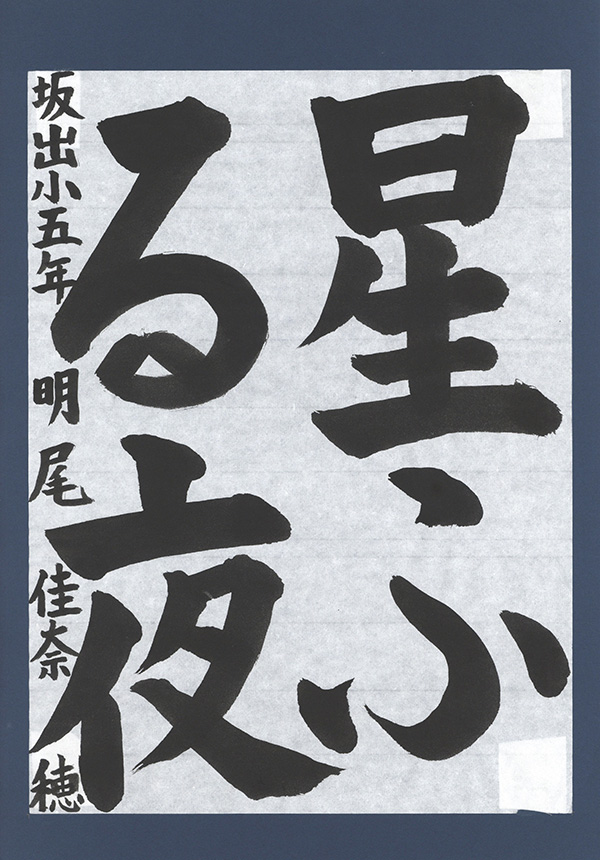 星ふ
る夜
坂出小五年 明尾 佳奈穂